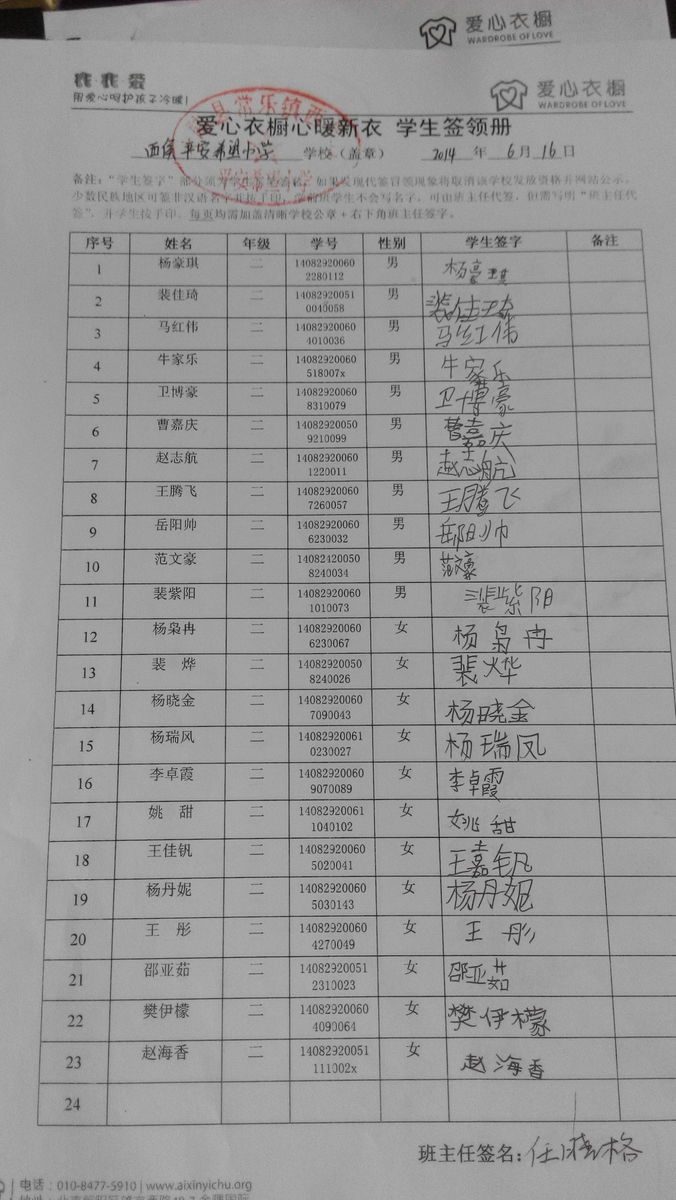 爱心衣橱
WARDROBE OF LOVE
用爱心呵护孩子冷暖!
爱心衣橱
WARDROBE OF LOVE
爱心衣橱心暖新衣 学生签领册
学校(盖章) 2014 年 6 月 16 日
少数民族地区可签非汉语名字并按手印;学前班学生不会写名字,可由班主任代签,但需写明“班主任代
签”,并学生按手印。每页均需加盖清晰学校公章+右下角班主任签字。
序号 姓名 年级 学号 性别 学生签字 备注
1 杨豪琪 二 140829200602280112 男 杨豪琪
2 裴佳琦 二 140829200510040058 男 裴佳琦
3 马红伟 二 140829200604010036 男 马红伟
4 牛家乐 二 14082920060518007x 男 牛家乐
5 卫博豪 二 140829200608310079 男 卫博豪
6 曹嘉庆 二 140829200509210099 男 曹嘉庆
7 赵志航 二 140829200601220011 男 赵志航
8 王腾飞 二 140829200607260057 男 王腾飞
9 岳阳帅 二 140829200606230032 男 岳阳帅
10 范文豪 二 140824200508240034 男 范文豪
11 裴紫阳 二 140829200601010073 男 裴紫阳
12 杨枭冉 二 140829200606230067 女 杨枭冉
13 裴 烨 二 140829200508240026 女 裴烨
14 杨晓金 二 140829200607090043 女 杨晓金
15 杨瑞风 二 140829200610230027 女 杨瑞凤
16 李卓霞 二 140829200609070089 女 李卓霞
17 姚 甜 二 140829200611040102 女 姚甜
18 王佳钒 二 140829200605020041 女 王嘉钒
19 杨丹妮 二 140829200605030143 女 杨丹妮
20 王 彤 二 140829200604270049 女 王 彤
21 邵亚茹 二 140829200512310023 女 邵亚茹
22 樊伊檬 二 140829200604090064 女 樊伊檬
23 赵海香 二 14082920051111002x 女 赵海香
24
班主任签名:
电话:010-8477-5910 | www.aixinyichu.org